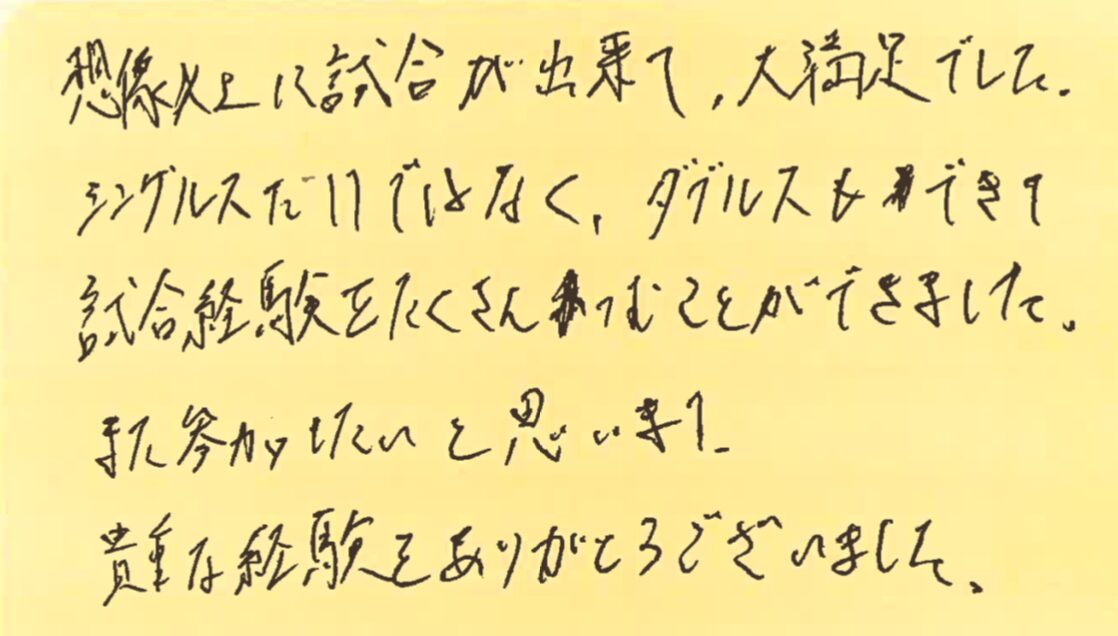 想像以上に試合が出来て、大満足でした。
シングルスだけではなく、ダブルスもできて
試合経験をたくさんつむことができました。
また参加したいと思います。
貴重な経験をありがとうございました。